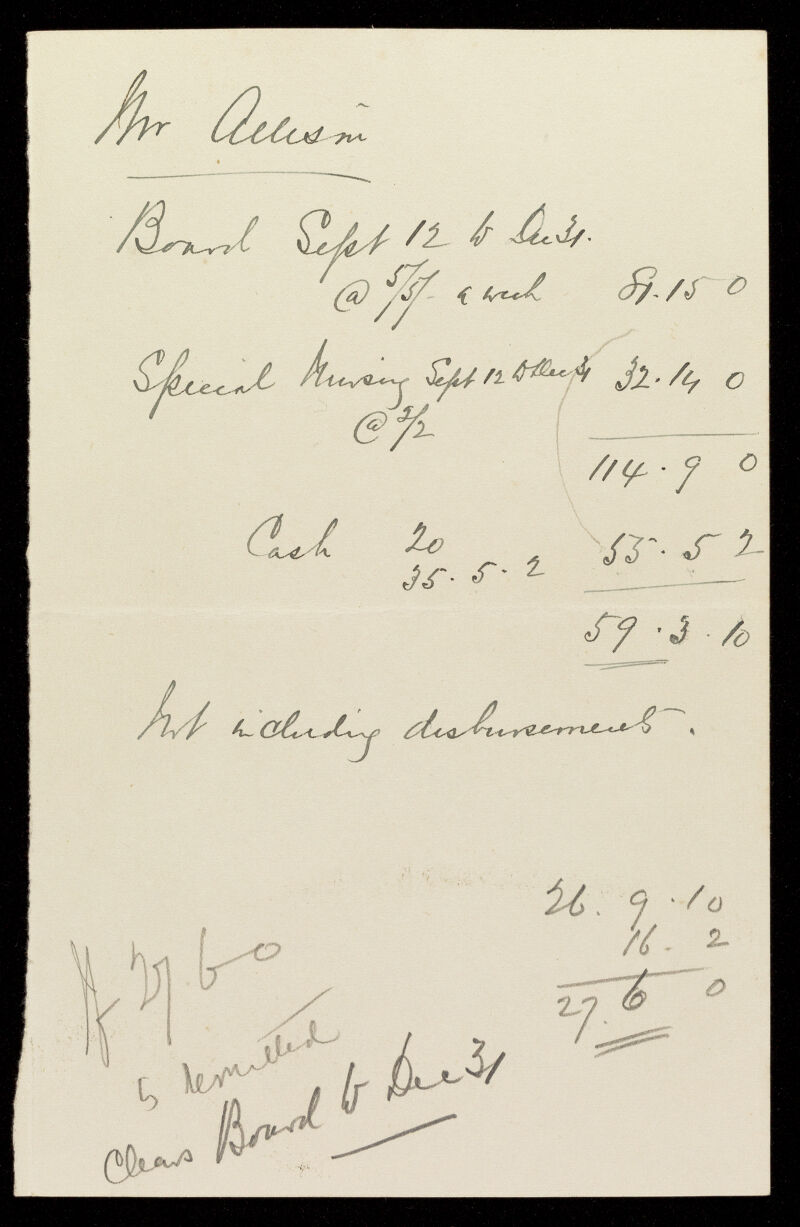 Mr Allison
Board Sept 12 to Dec 31.
@ 5/5/- a week 81.15 0
Special Nursing Sept 12 to Dec 31 32.14 0
@ 2/2
114.9 0
Cash 20 55.5 2
35.5.2
59.3.10
Not including disbursements.
26.9.10
16.2
27.6 0
If 27.6 0
is remitted
Clears Board to Dec 31